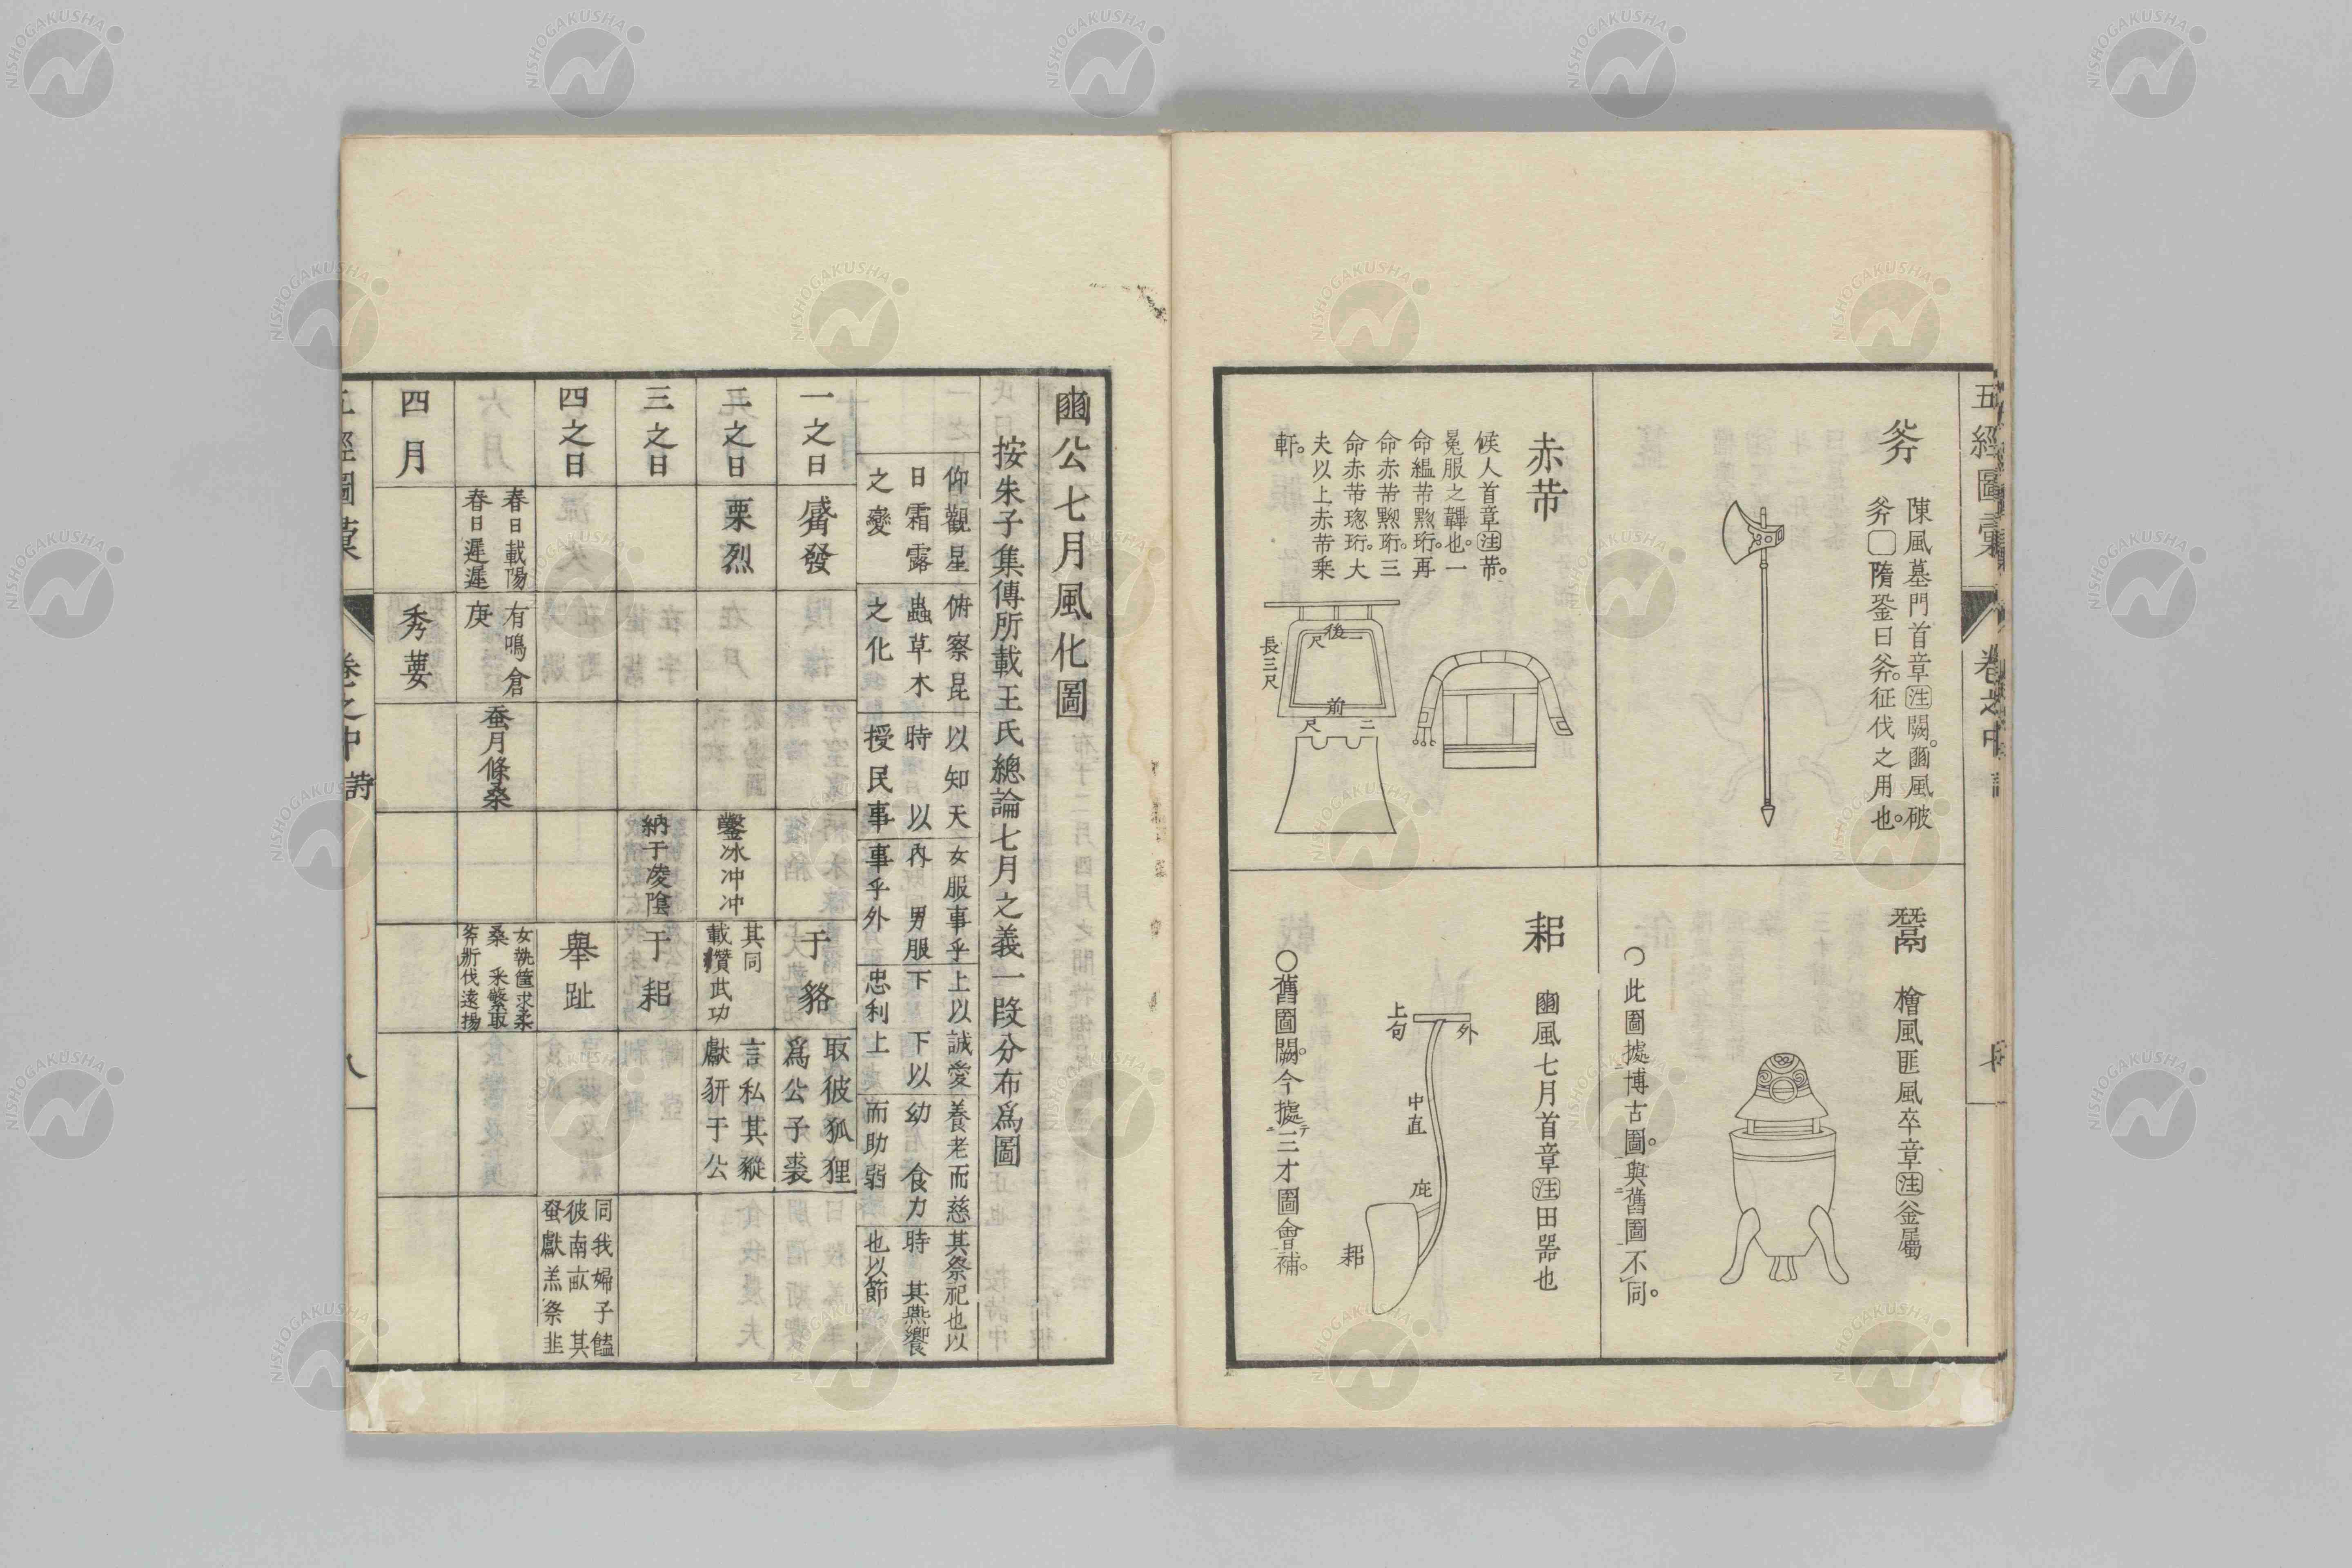 五經圖彙
卷之中
斧
陳風墓門首章注闕。豳風破
斧隋銎曰斧。征伐之用也。
赤芾
候人首章注芾。
冕服之韠也。一
命縕芾黝珩。再
命赤芾黝珩。三
命赤芾璁珩。大
夫以上赤芾乗
軒。
後一
尺
長三尺
前二
尺
鬵
檜風匪風卒章注釜屬
○此圖據博古圖。與舊圖不同。
耜
豳風七月首章注田器也
外
上句
中直
庇
耜
○舊圖闕。今據三才圖會補。
豳公七月風化圖
按朱子集傳所載王氏總論七月之義一段分布爲圖
仰觀星
日霜露
之變
俯察昆
蟲草木
之化
以知天
時以
授民事
女服事乎
內男服
事乎外
上以誠愛
下下以
忠利上
養老而慈
幼食力
而助弱
其祭祀也以
時其燕饗
也以節
一之日
觱發
于貉
取彼狐狸
爲公子裘
二之日
栗烈
鑿冰冲冲
其同
載纘武功
言私其豵
獻豜于公
三之日
納于凌陰
于耜
四之日
舉趾
同我婦子饁
彼南畝其
蚤獻羔祭韭
春日載陽
春日遲遲
有鳴倉
庚
蚕月條桑
女執筐求柔
桑采蘩取
斧斨伐遠揚
四月
秀葽
五經圖彙
卷之中
詩
八
NISHOGAKUSHA